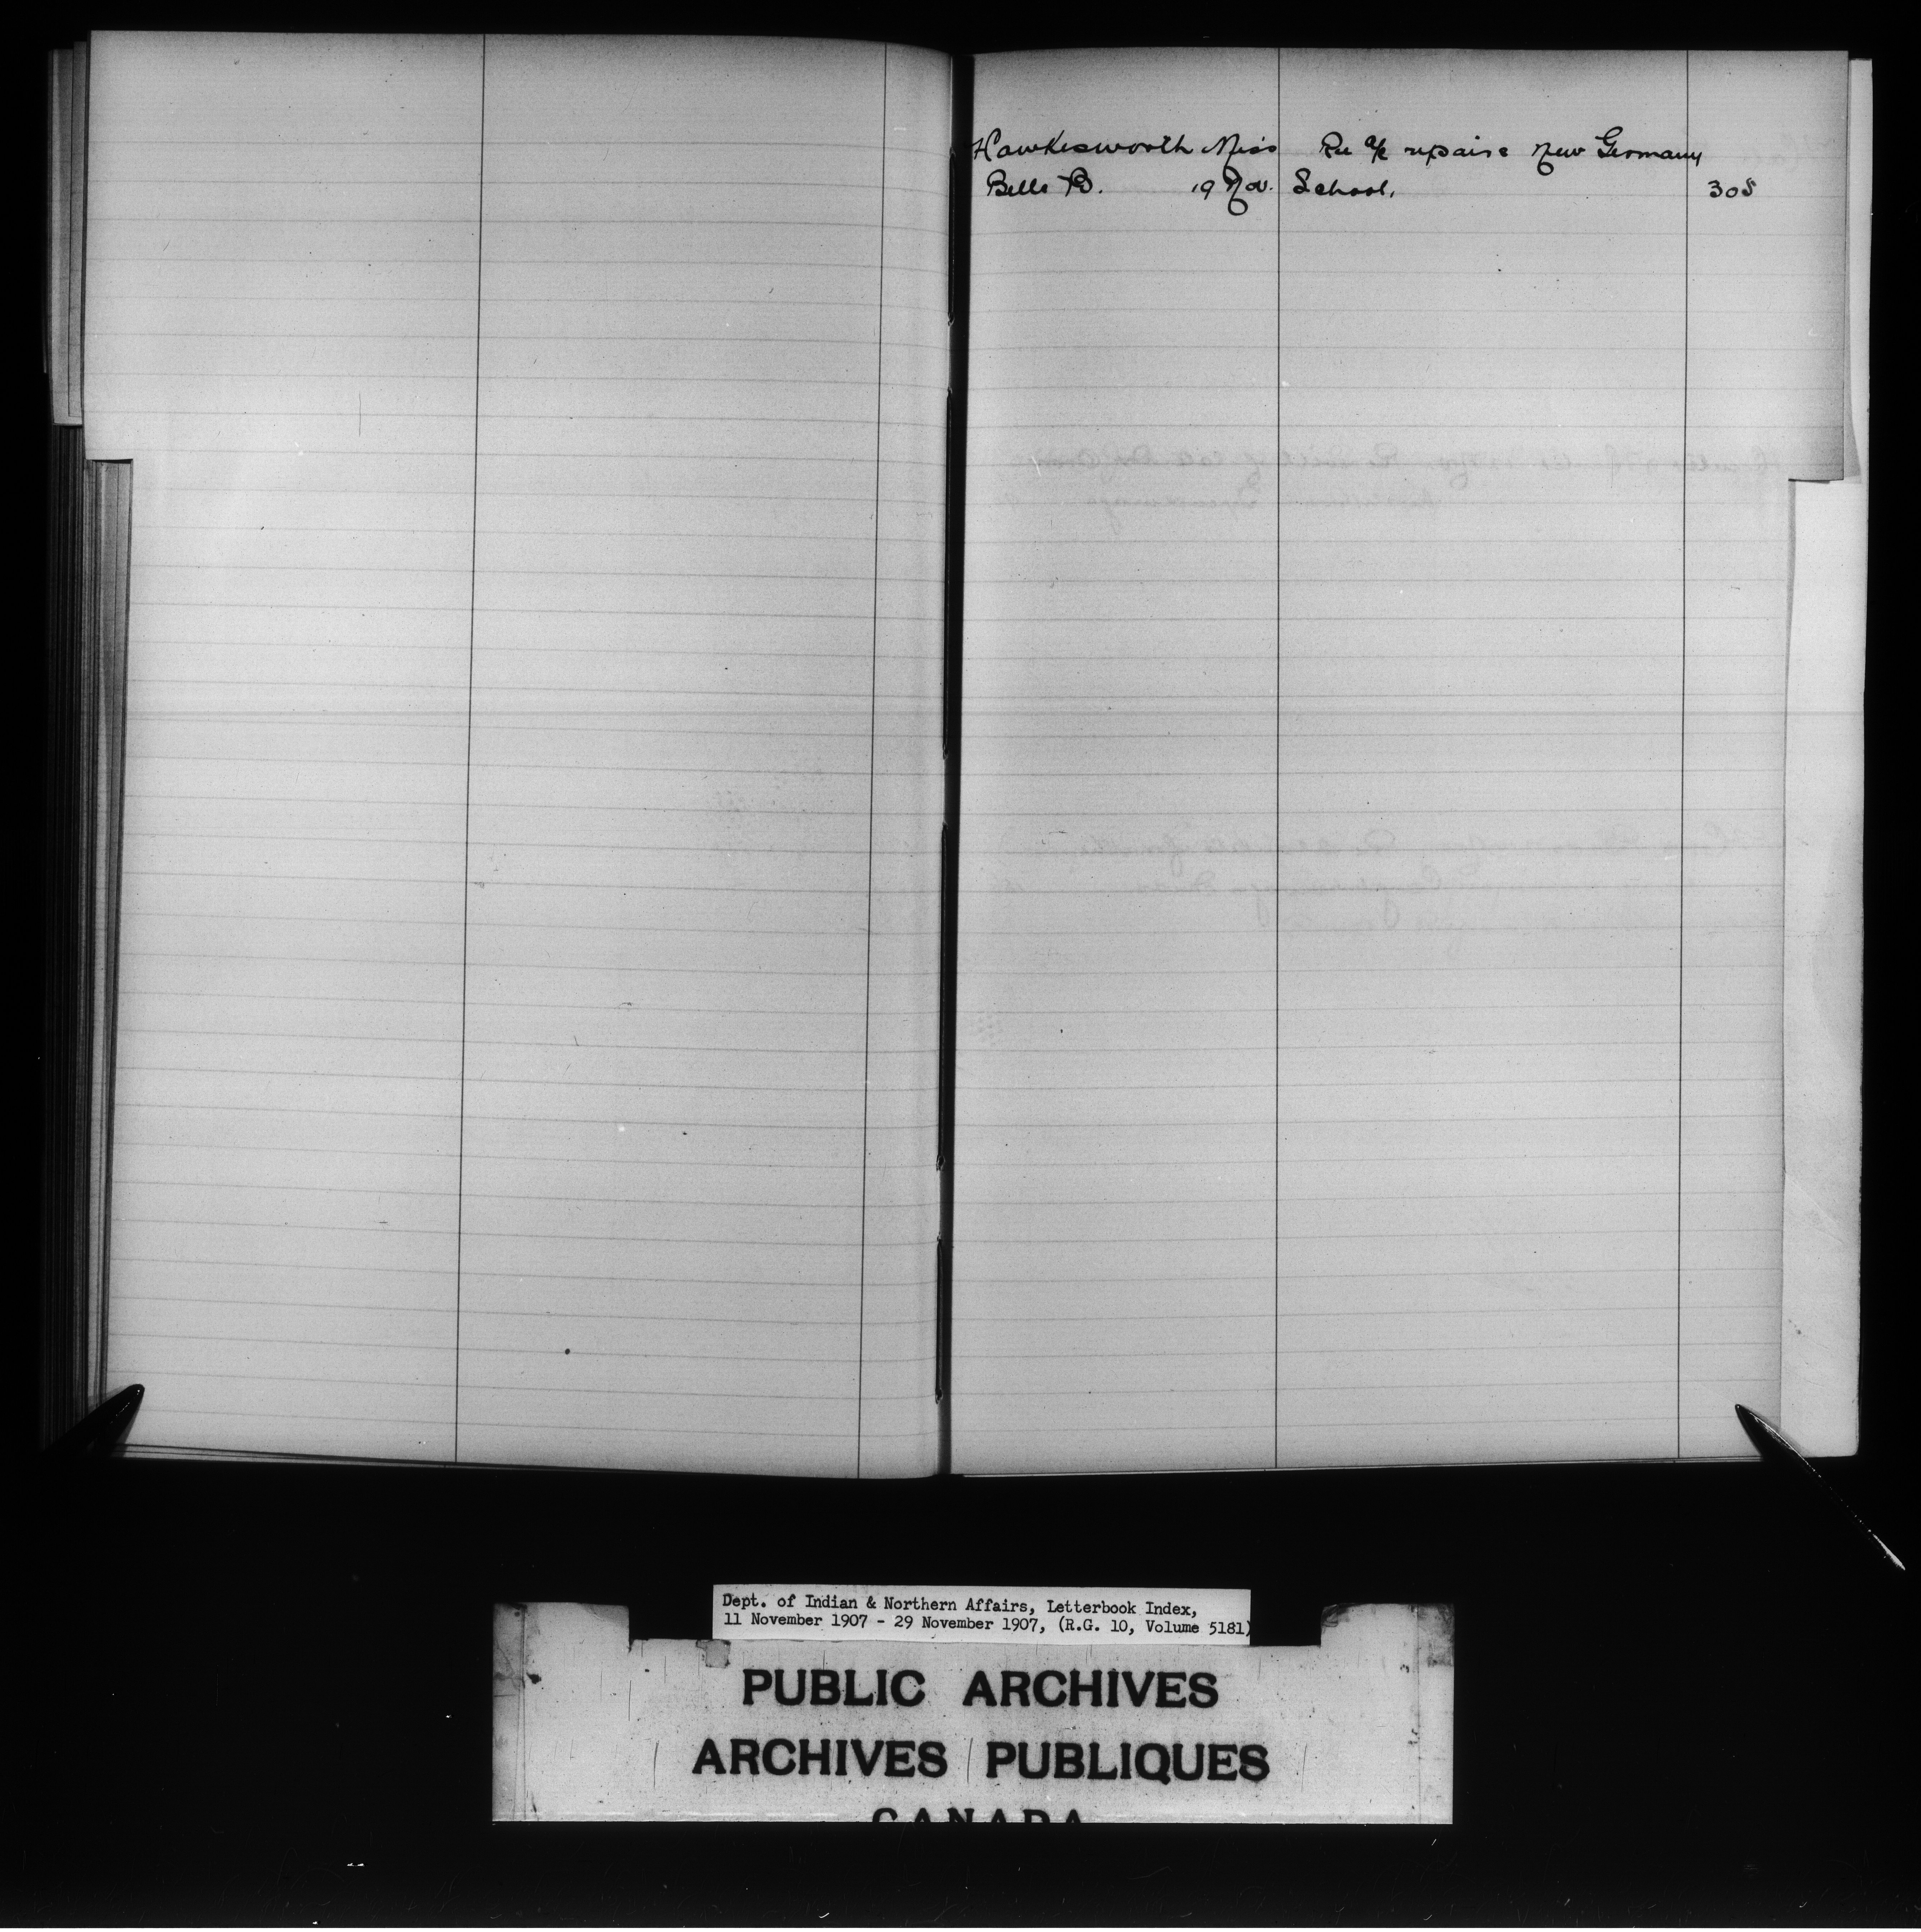 Hawkesworth Miss Re a/c repairs New Germany
Belle B. 19 Nov. School. 305
Dept. of Indian & Northern Affairs, Letterbook Index,
11 November 1907 - 29 November 1907, (R.G. 10, Volume 5181)
PUBLIC ARCHIVES
ARCHIVES PUBLIQUES
CANADA